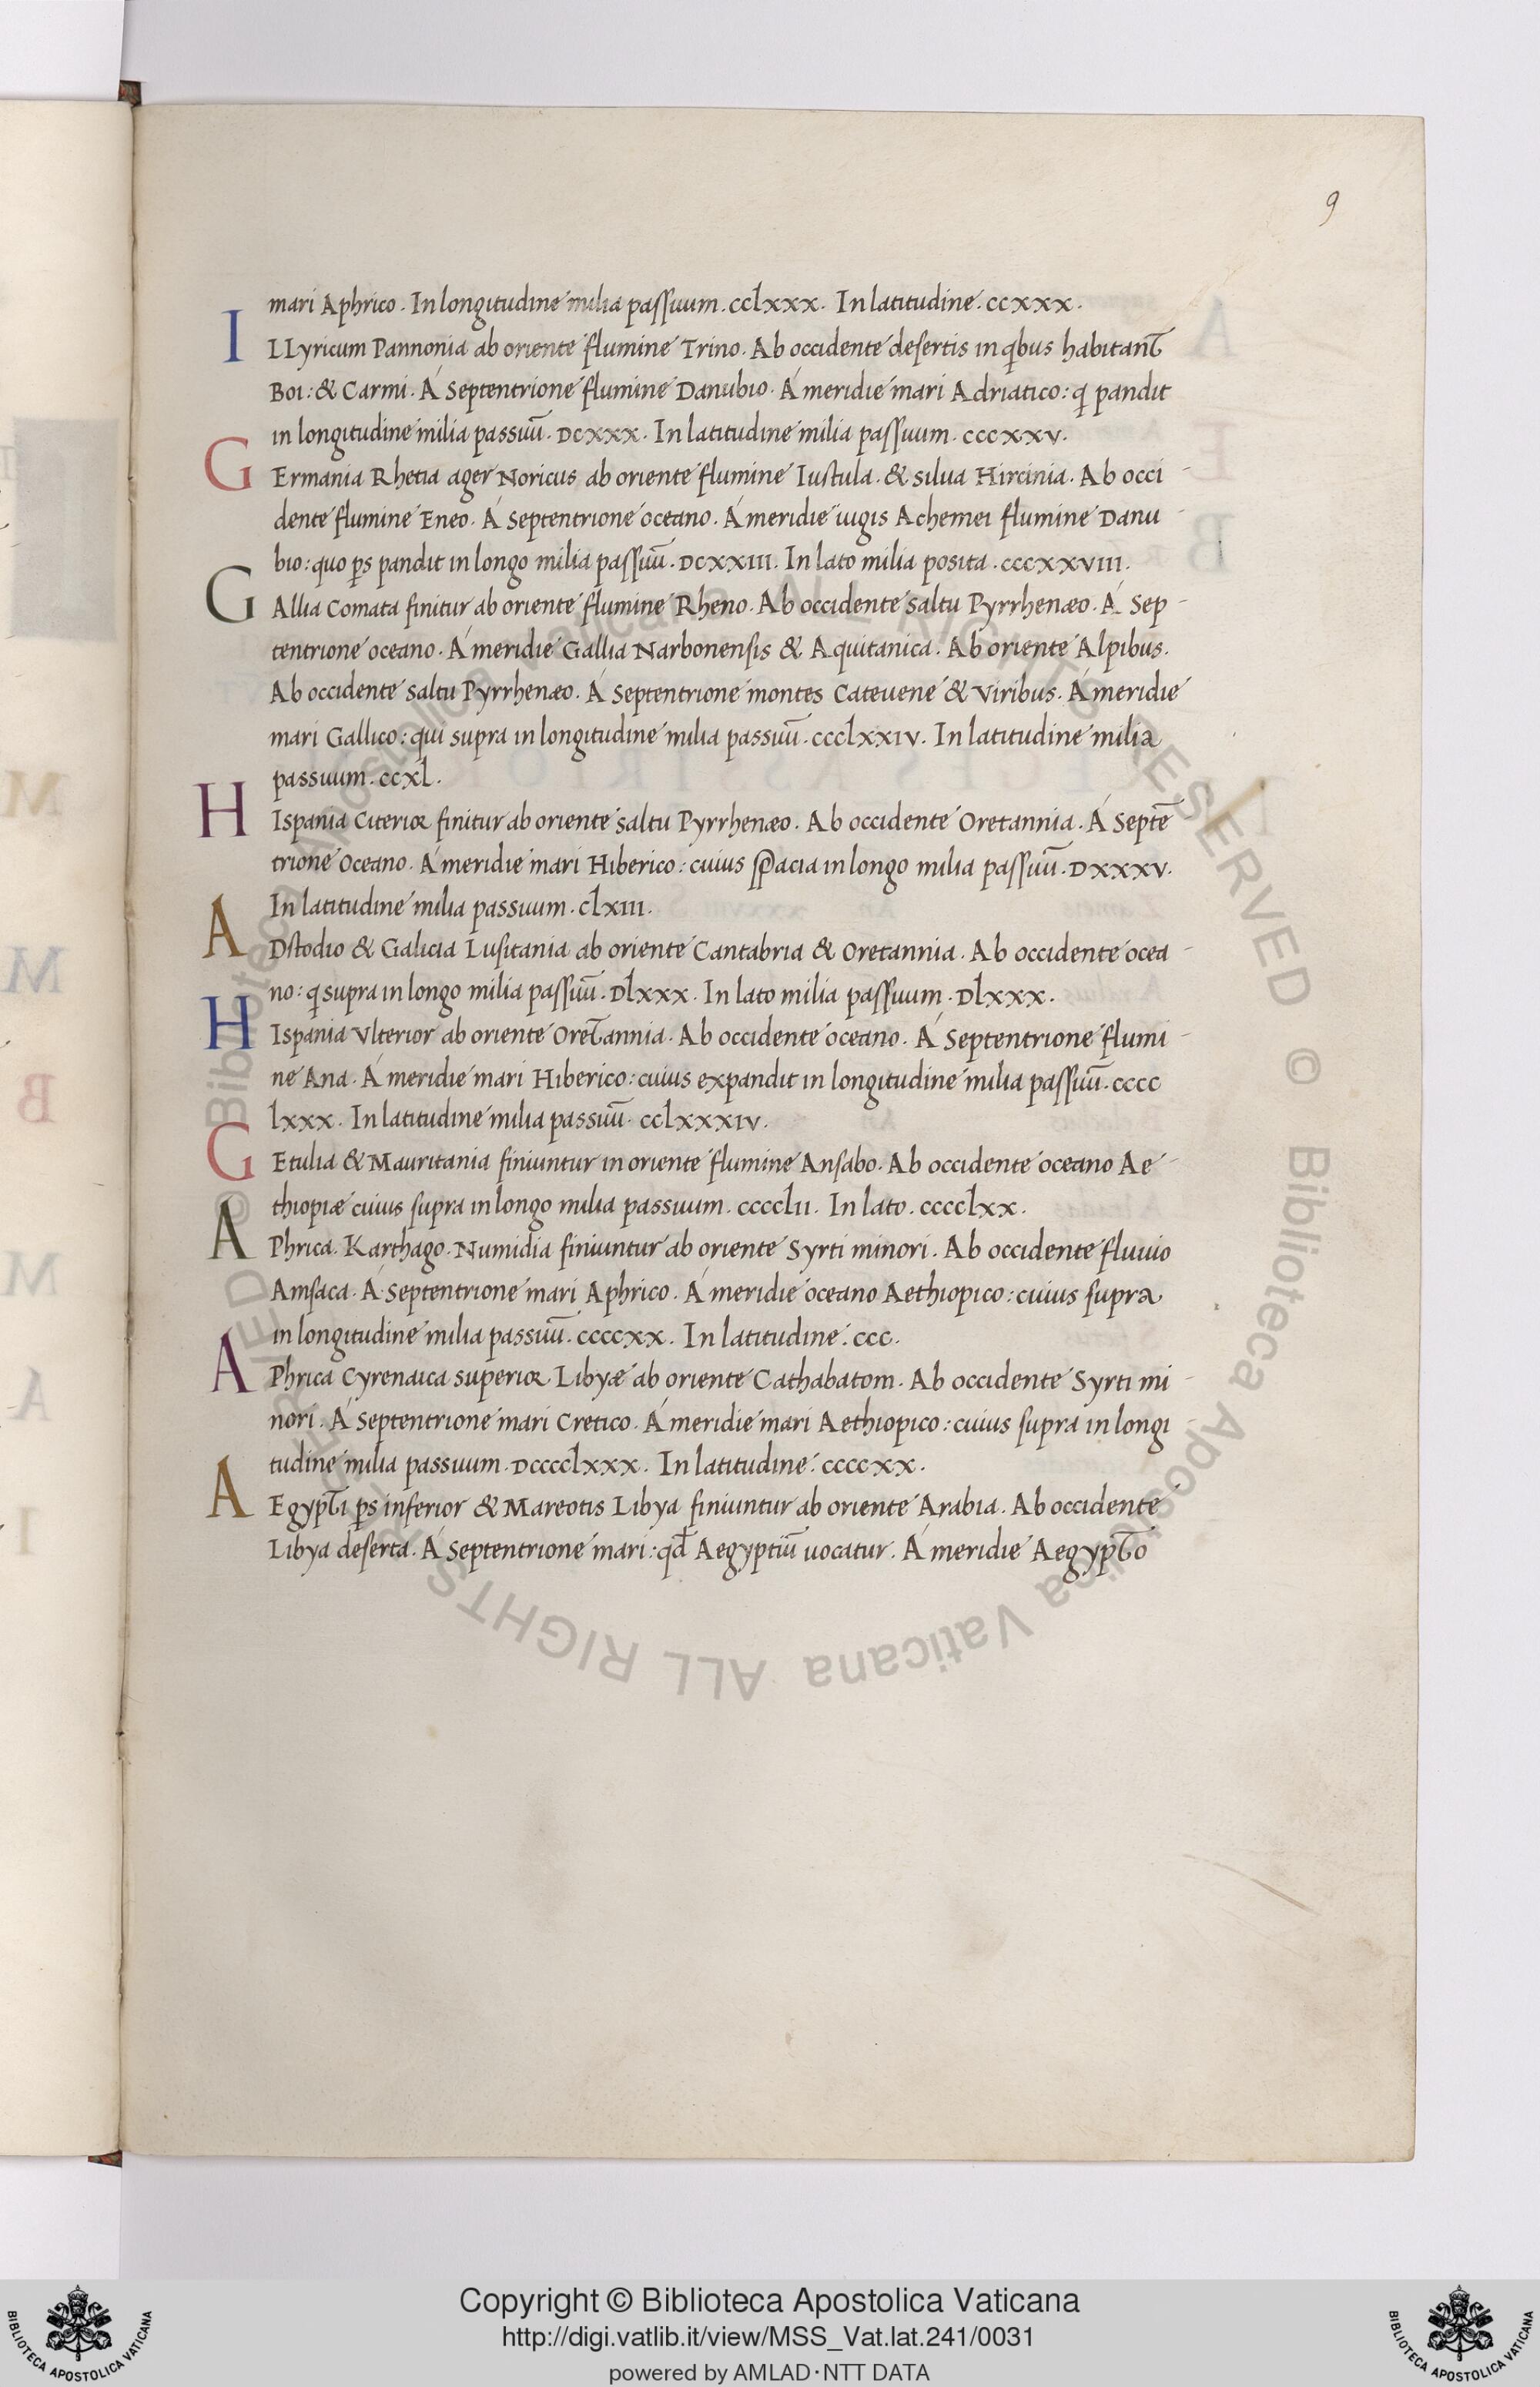 9
mari Aphrico. In longitudine milia passuum. cclxxx. In latitudine. ccxxx.
ILLyricum Pannonia ab oriente flumine Trino. Ab occidente desertis in qbus habitant
Boi: & Carmi. Á Septentrione flumine Danubio. Á meridie mari Adriatico: q pandit
in longitudine milia passuū. DCXXX. In latitudine milia passuum. cccxxv.
GErmania Rhetia ager Noricus ab oriente flumine Iustula. & silua Hircinia. Ab occi-
dente flumine Eneo. Á Septentrione oceano. Á meridie iugis Achemei flumine Danu-
bio: quo ps pandit in longo milia passuū. DCXXIII. In lato milia posita. cccxxviii.
GAllia Comata finitur ab oriente flumine Rheno. Ab occidente saltu Pyrrhenæo. Á Sep-
tentrione oceano. Á meridie Gallia Narbonensis & Aquitanica. Ab oriente Alpibus.
Ab occidente saltu Pyrrhenæo. Á Septentrione montes Cateuene & Viribus. Á meridie
mari Gallico: qui supra in longitudine milia passuū. ccclxxiv. In latitudine milia
passuum. ccxl.
HIspania Citerior finitur ab oriente saltu Pyrrhenæo. Ab occidente Oretannia. Á Septē
trione Oceano. Á meridie mari Hiberico: cuius spacia in longo milia passuū. DXXXV.
In latitudine milia passuum. clxiii.
ADstodio & Galicia Lusitania ab oriente Cantabria & Oretannia. Ab occidente ocea-
no: q supra in longo milia passuū. Dlxxx. In lato milia passuum. Dlxxx.
HIspania Vlterior ab oriente Oretannia. Ab occidente oceano. Á Septentrione flumi-
ne Ana. Á meridie mari Hiberico: cuius expandit in longitudine milia passuū. cccc
lxxx. In latitudine milia passuū. cclxxxiv.
GEtulia & Mauritania finiuntur in oriente flumine Ansabo. Ab occidente oceano Ae-
thiopiæ cuius supra in longo milia passuum. cccclii. In lato. cccclxx.
APhrica. Karthago. Numidia finiuntur ab oriente Syrti minori. Ab occidente fluuio
Amsaca. Á Septentrione mari Aphrico. Á meridie oceano Aethiopico: cuius supra
in longitudine milia passuū. ccccxx. In latitudine. ccc.
APhrica Cyrenaica superior Libyæ ab oriente Cathabatom. Ab occidente Syrti mi-
nori. Á Septentrione mari Cretico. Á meridie mari Aethiopico: cuius supra in longi-
tudine milia passuum. Dcccclxxx. In latitudine. ccccxx.
AEgypti ps inferior & Mareotis Libya finiuntur ab oriente Arabia. Ab occidente
Libya deserta. Á Septentrione mari: qd Aegyptiū uocatur. Á meridie Aegypto
© Biblioteca Apostolica Vaticana ALL RIGHTS RESERVED © Biblioteca Apostolica Vaticana ALL RIGHTS RESERVED
Copyright © Biblioteca Apostolica Vaticana
http://digi.vatlib.it/view/MSS_Vat.lat.241/0031
powered by AMLAD·NTT DATA
BIBLIOTECA APOSTOLICA VATICANA
BIBLIOTECA APOSTOLICA VATICANA